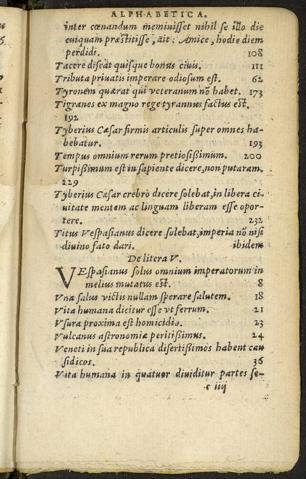 ALPHABETICA.
inter cœnandum meminisset nihil se illo die
cuiquam præstitisse, ait: Amice, hodie diem
perdidi. 108
Tacere discat quisque bonus civis. 111
Tributa privatis imperare odiosum est. 62
Tyronem quærat qui veteranum nō habet. 173
Tigranes ex magno rege tyrannus factus est.
192
Tyberius Cæsar firmis articulis super omnes ha-
bebatur. 193
Tempus omnium rerum pretiosissimum. 200
Turpissimum est in sapiente dicere, non putaram.
229
Tyberius Cæsar crebrò dicere solebat, in libera ci-
vitate mentem ac linguam liberam esse opor-
tere. 232
Titus Vespasianus dicere solebat, imperia nō nisi
divino fato dari. ibidem
De litera V.
VEspasianus solus omnium imperatorum in
melius mutatus est. 8
Vna salus victis nullam sperare salutem. 18
Vita humana dicitur esse vt ferrum. 21
Vsura proxima est homicidio. 23
Vulcanus astronomiæ peritissimus. 24
Veneti in sua republica disertissimos habent cau
sidicos. 36
Vita humana in quatuor diuiditur partes se-
c iiij